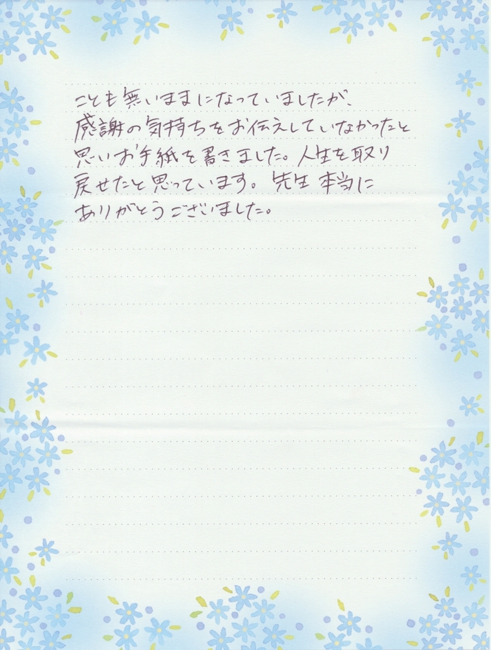 ことも無いままになっていましたが、
感謝の気持ちをお伝えしていなかったと
思いお手紙を書きました。人生を取り
戻せたと思っています。先生本当に
ありがとうございました。